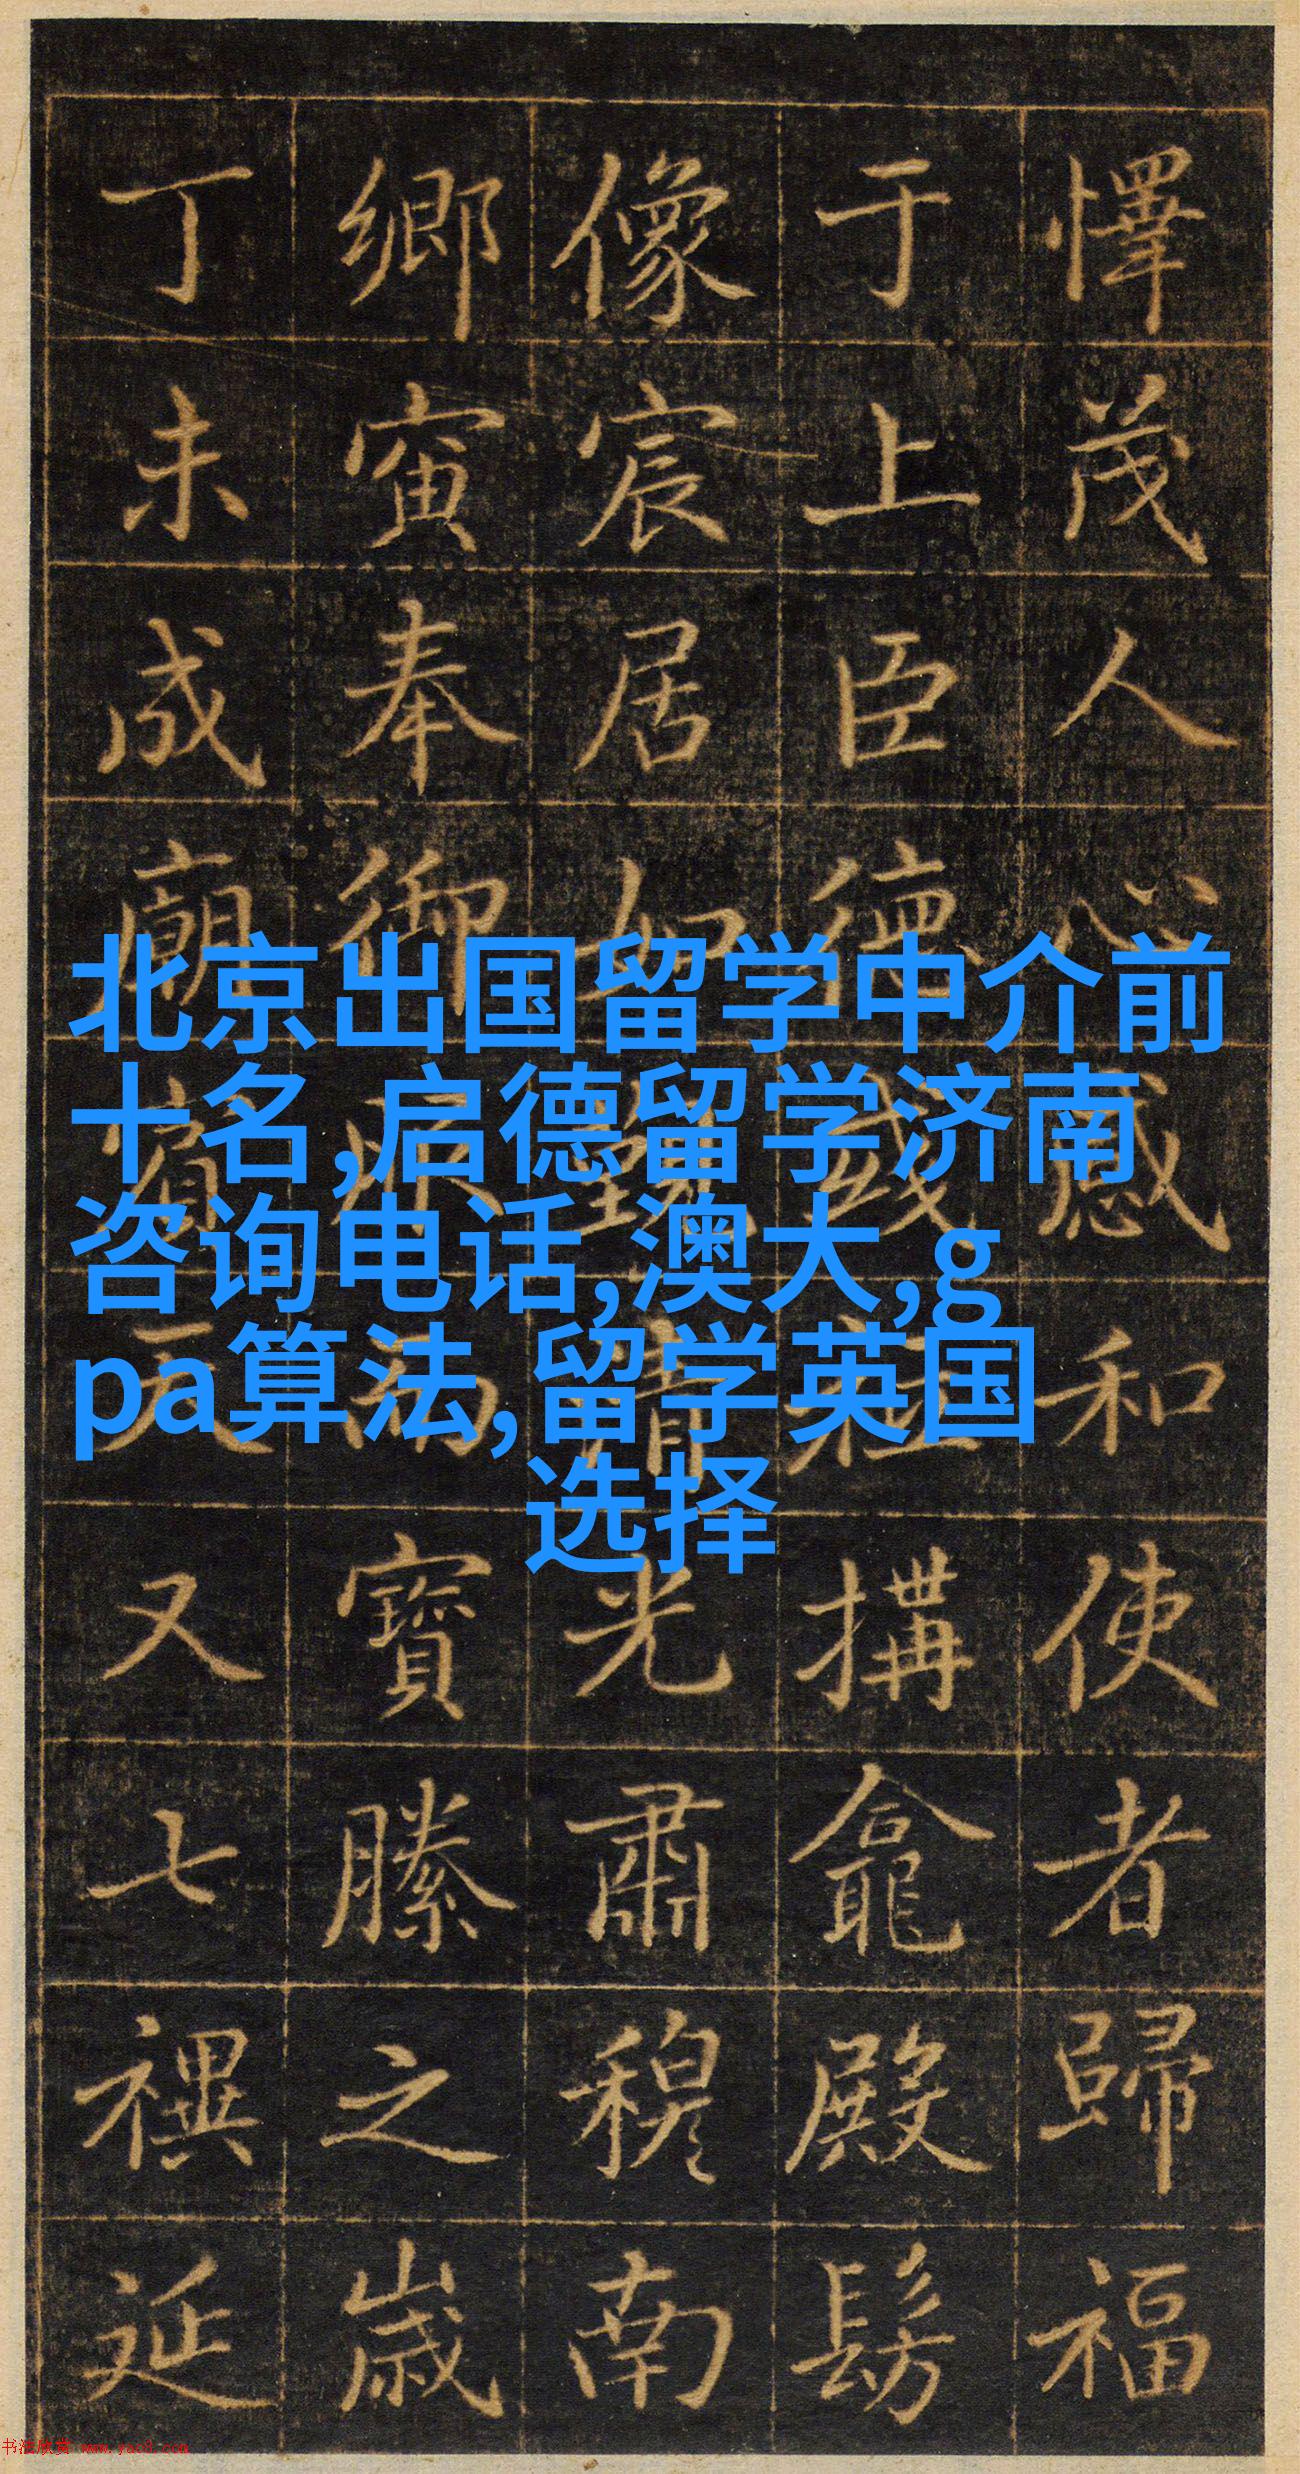 懌茂人心感和使者歸福
于上臣德構龕殿髣
像宸居如光肅穆南
鄉寅奉御寶縢之歲
丁未成廟又七禩延
北京出国留学中介前
十名,启德留学济南
咨询电话,澳大,g
pa算法,留学英国
选择
书法欣赏 www.yac8.com